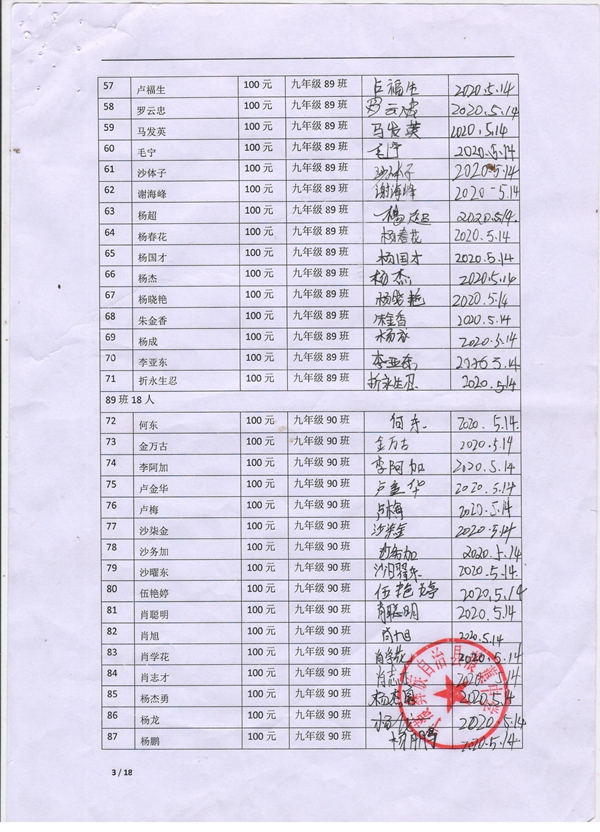 57 卢福生 100 元 九年级 89 班 卢福生 2020.5.14
58 罗云忠 100 元 九年级 89 班 罗云忠 2020.5.14
59 马发英 100 元 九年级 89 班 马发英 2020.5.14
60 毛宁 100 元 九年级 89 班 毛宁 2020.5.14
61 沙体子 100 元 九年级 89 班 沙体子 2020.5.14
62 谢海峰 100 元 九年级 89 班 谢海峰 2020.5.14
63 杨超 100 元 九年级 89 班 杨超 2020.5.14
64 杨春花 100 元 九年级 89 班 杨春花 2020.5.14
65 杨国才 100 元 九年级 89 班 杨国才 2020.5.14
66 杨杰 100 元 九年级 89 班 杨杰 2020.5.14
67 杨晓艳 100 元 九年级 89 班 杨晓艳 2020.5.14
68 朱金香 100 元 九年级 89 班 朱金香 2020.5.14
69 杨成 100 元 九年级 89 班 杨成 2020.5.14
70 李亚东 100 元 九年级 89 班 李亚东 2020.5.14
71 折永生忍 100 元 九年级 89 班 折永生忍 2020.5.14
89 班 18 人
72 何东 100 元 九年级 90 班 何东 2020.5.14
73 金万古 100 元 九年级 90 班 金万古 2020.5.14
74 李阿加 100 元 九年级 90 班 李阿加 2020.5.14
75 卢金华 100 元 九年级 90 班 卢金华 2020.5.14
76 卢梅 100 元 九年级 90 班 卢梅 2020.5.14
77 沙柒金 100 元 九年级 90 班 沙柒金 2020.5.14
78 沙务加 100 元 九年级 90 班 沙务加 2020.5.14
79 沙曜东 100 元 九年级 90 班 沙曜东 2020.5.14
80 伍艳婷 100 元 九年级 90 班 伍艳婷 2020.5.14
81 肖聪明 100 元 九年级 90 班 肖聪明 2020.5.14
82 肖旭 100 元 九年级 90 班 肖旭 2020.5.14
83 肖学花 100 元 九年级 90 班 肖学花 2020.5.14
84 肖志才 100 元 九年级 90 班 肖志 2020.5.14
85 杨杰勇 100 元 九年级 90 班 杨杰勇 2020.5.14
86 杨龙 100 元 九年级 90 班 杨龙 2020.5.14
87 杨鹏 100 元 九年级 90 班 杨鹏 2020.5.14
族自治县
3 / 18